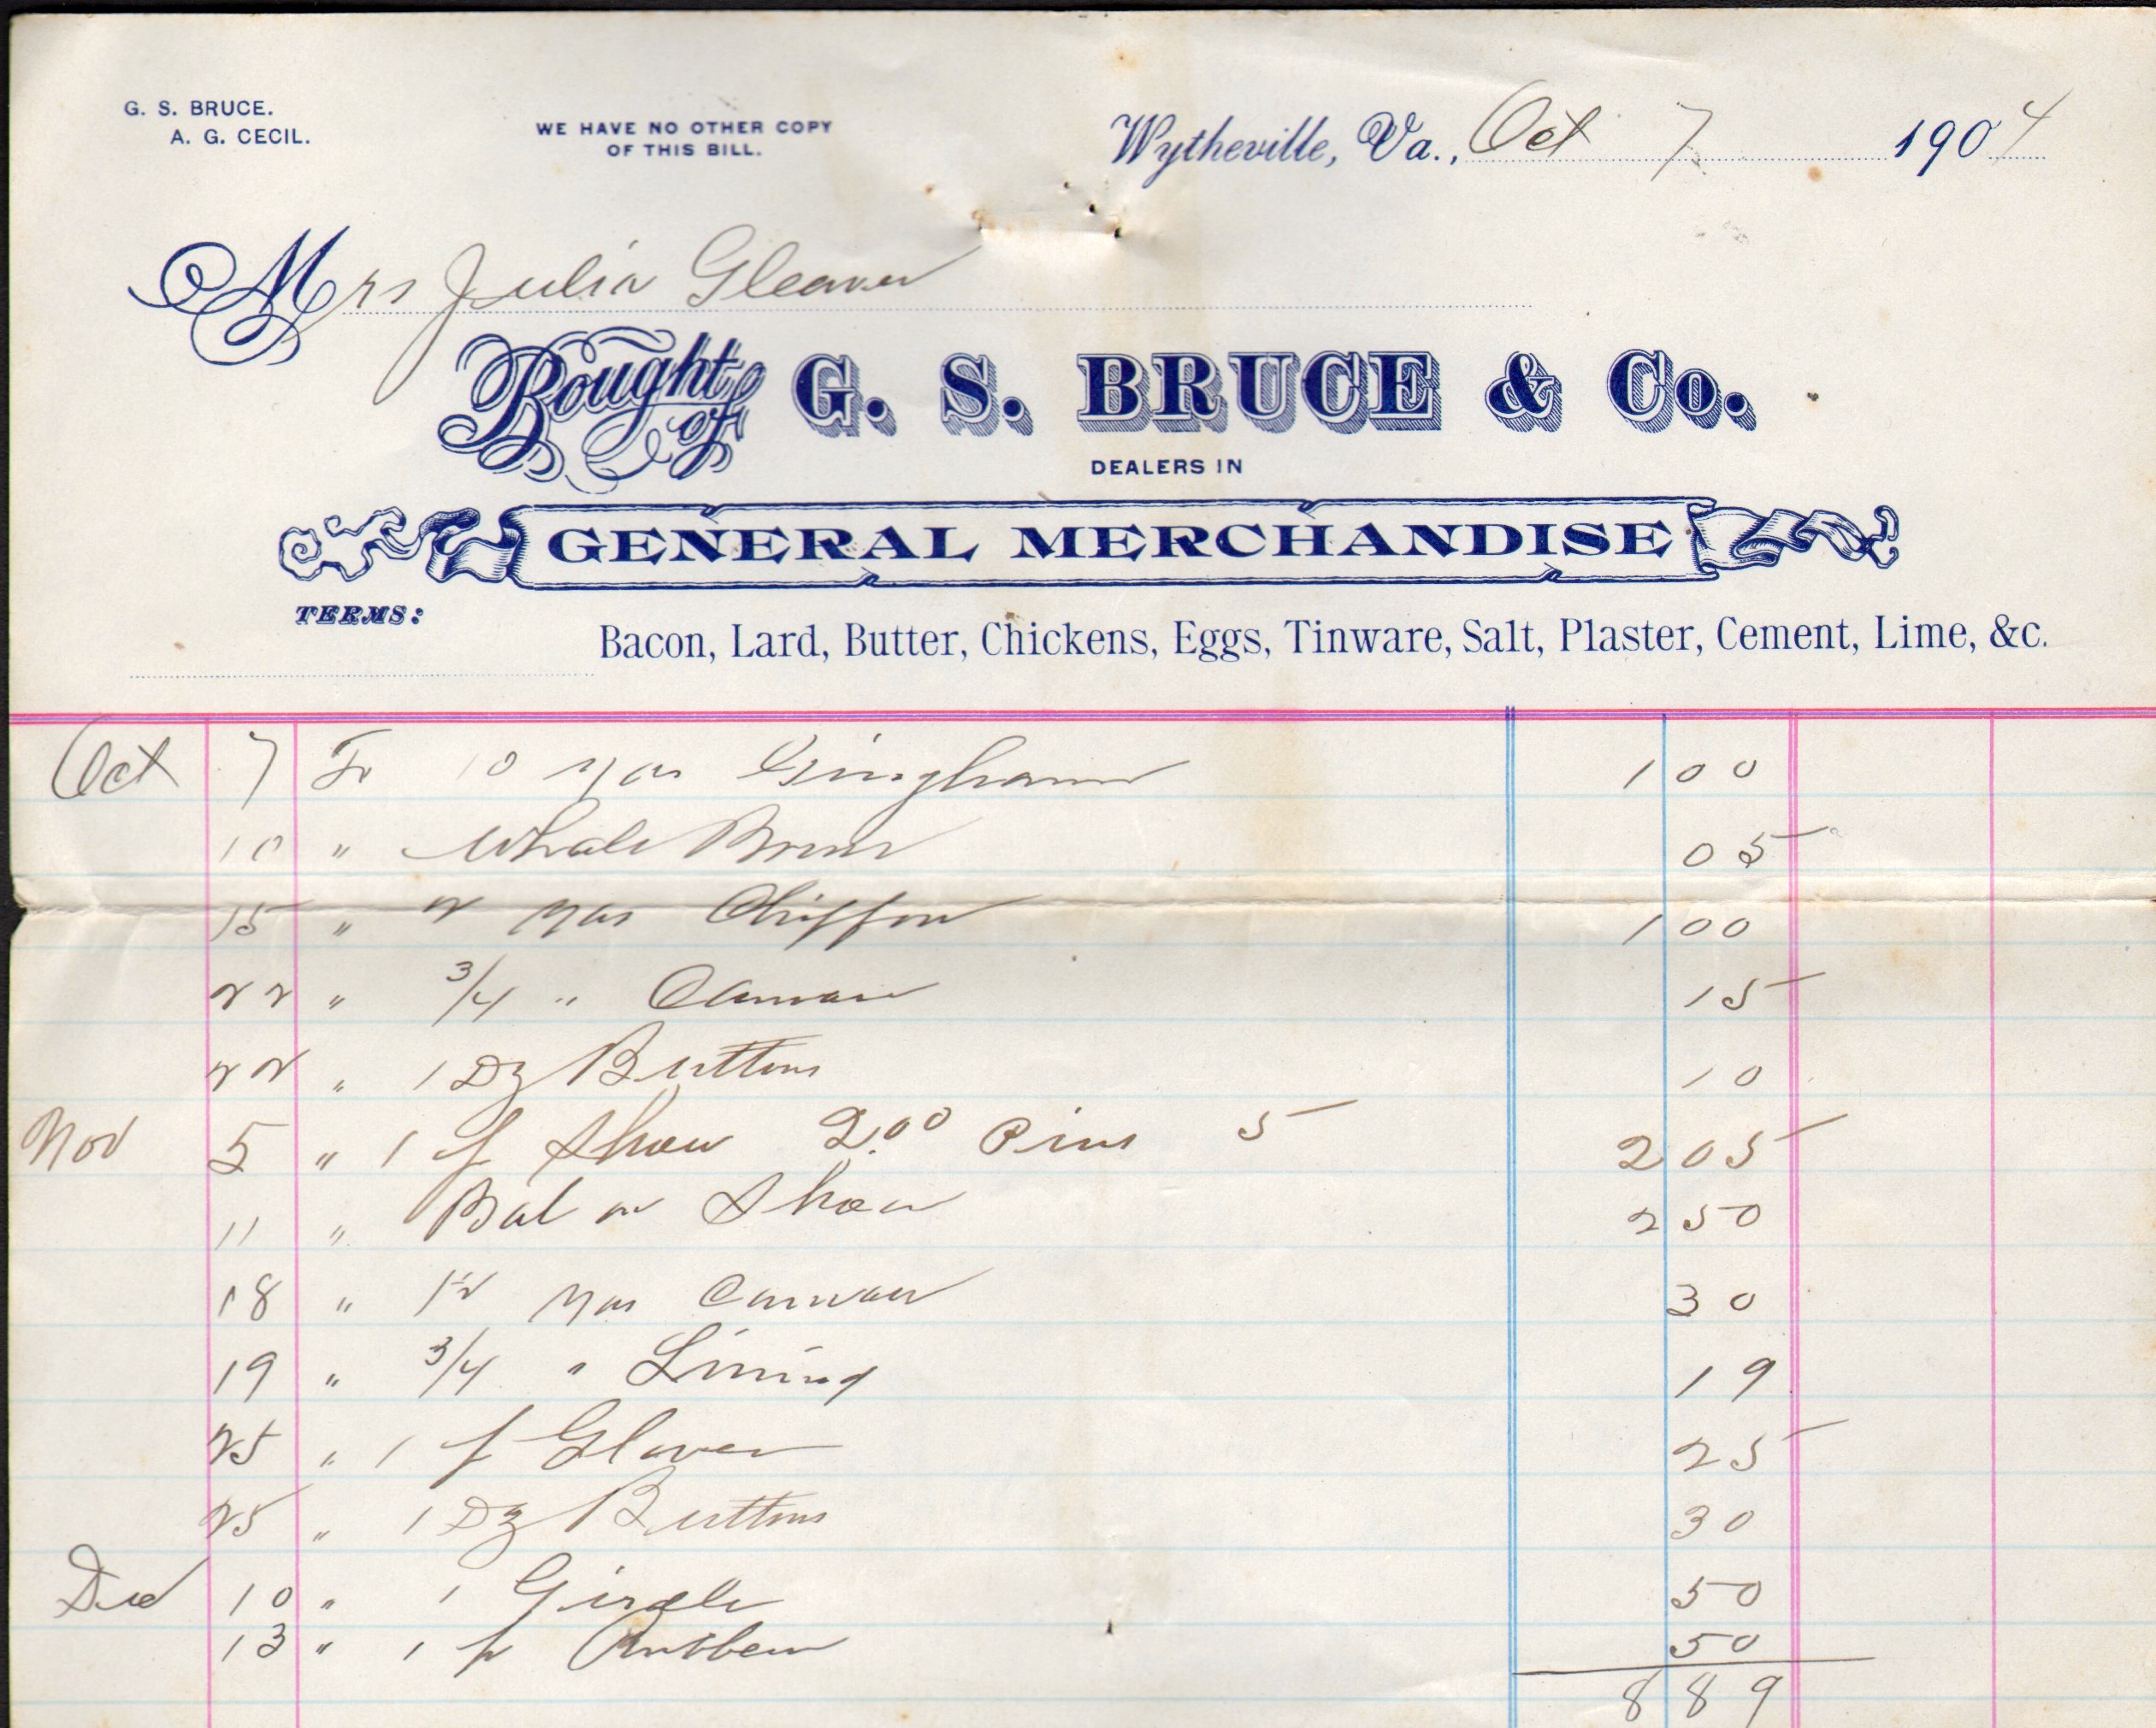 G. S. BRUCE.
A. G. CECIL.
WE HAVE NO OTHER COPY
OF THIS BILL.
Wytheville, Va., Oct 7 1904
Mrs Julia Gleaves
Bought of G. S. BRUCE & Co.
DEALERS IN
GENERAL MERCHANDISE
TERMS:
Bacon, Lard, Butter, Chickens, Eggs, Tinware, Salt, Plaster, Cement, Lime, &c.
Oct 7 To 10 yds Gingham 1 00
10 " Whale Bone 05
15 " 2 yds Chiffon 1 00
22 " 3/4 " Canvas 15
22 " 1 Dz Buttons 10
Nov 5 " 1 p Shoes 2.00 Pins 5 2 05
11 " Bal on Shoes 2 50
18 " yds Canvas 30
19 " 3/4 " Lining 19
25 " 1 p Gloves 25
25 " 1 Dz Buttons 30
Dec 10 " 1 Girdle 50
13 " 1 p Rubbers 50
8 89